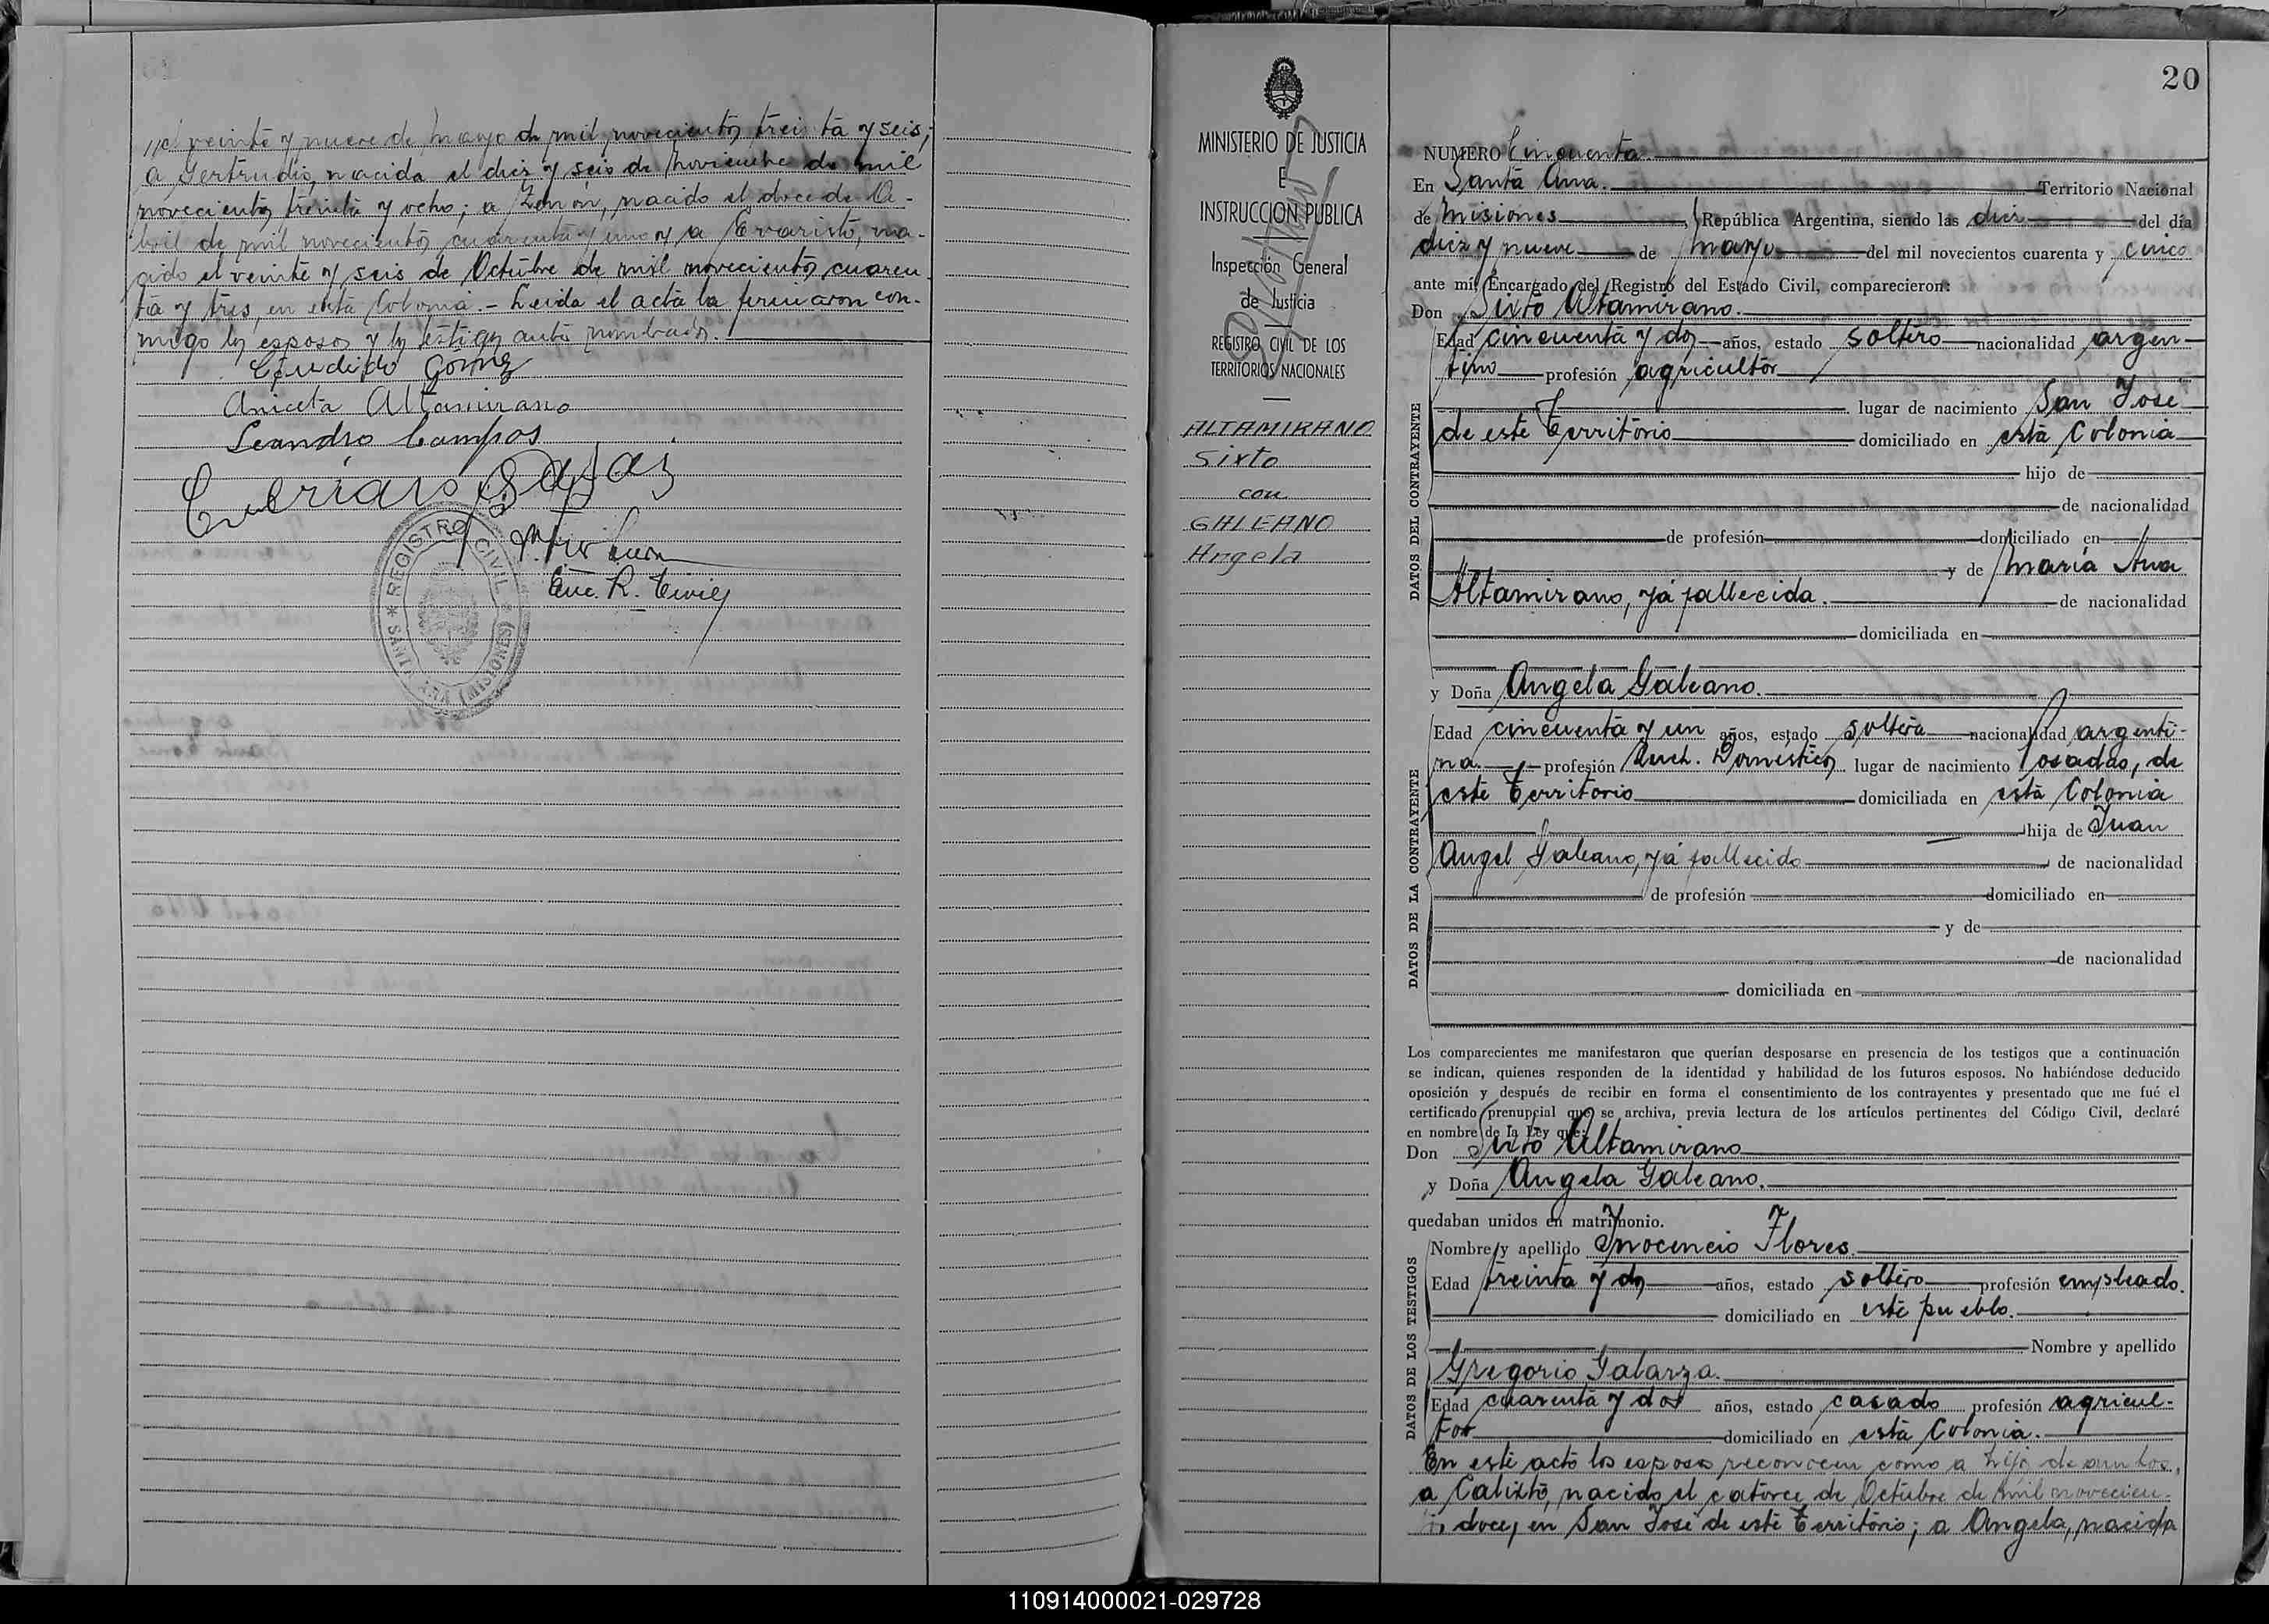 //el veinte y nueve de Mayo de mil novecientos trei ta y seis;
a Gertrudis, nacida el diez y seis de Noviembre de mil
novecientos treinta y ocho; a Zenón, nacido el doce de A-
bril de mil novecientos cuarenta y uno y a Evaristo, na-
cido el veinte y seis de Octubre de mil novecientos cuaren-
ta y tres, en esta Colonia.- Leida el acta la firmaron con-
migo los esposos y los testigos antes nombrados.
Candido Gómez
Aniceta Altamirano
Leandro Campos
Enc. R. Civil
* REGISTRO CIVIL * SANTA ANA (MISIONES)
MINISTERIO DE JUSTICIA
E
INSTRUCCION PUBLICA
Inspección General
de Justicia
REGISTRO CIVIL DE LOS
TERRITORIOS NACIONALES
ALTAMIRANO
Sixto
con
GALEANO
Angela
20
NUMERO Cincuenta.
En Santa Ana. Territorio Nacional
de Misiones, República Argentina, siendo las diez del día
diez y nueve de Mayo del mil novecientos cuarenta y cinco
ante mí, Encargado del Registro del Estado Civil, comparecieron:
Don Sixto Altamirano.
DATOS DEL CONTRAYENTE
Edad cincuenta y dos años, estado soltero nacionalidad argen-
tino profesión agricultor
lugar de nacimiento San José
de este Territorio domiciliado en esta Colonia
hijo de
de nacionalidad
de profesión domiciliado en
y de María Ana
Altamirano, yá fallecida. de nacionalidad
domiciliada en
y Doña Angela Galeano.
DATOS DE LA CONTRAYENTE
Edad cincuenta y un años, estado soltera nacionalidad argenti-
na. profesión Queh. Domésticos lugar de nacimiento Posadas, de
este Territorio domiciliada en esta Colonia
hija de Juan
Angel Galeano, yá fallecido de nacionalidad
de profesión domiciliado en
y de
de nacionalidad
domiciliada en
Los comparecientes me manifestaron que querían desposarse en presencia de los testigos que a continuación
se indican, quienes responden de la identidad y habilidad de los futuros esposos. No habiéndose deducido
oposición y después de recibir en forma el consentimiento de los contrayentes y presentado que me fué el
certificado prenupcial que se archiva, previa lectura de los artículos pertinentes del Código Civil, declaré
en nombre de la Ley que:
Don Sixto Altamirano
y Doña Angela Galeano.
quedaban unidos en matrimonio.
DATOS DE LOS TESTIGOS
Nombre y apellido Inocencio Flores.
Edad treinta y dos años, estado soltero profesión empleado.
domiciliado en este pueblo.
Nombre y apellido
Gregorio Galarza.
Edad cuarenta y dos años, estado casado profesión agricul-
tor domiciliado en esta Colonia.
En este acto los esposos reconocen como a hijo de ambos,
a Calixto, nacido el catorce de Octubre de mil novecien-
tos doce, en San José de este Territorio; a Angela, nacida
110914000021-029728